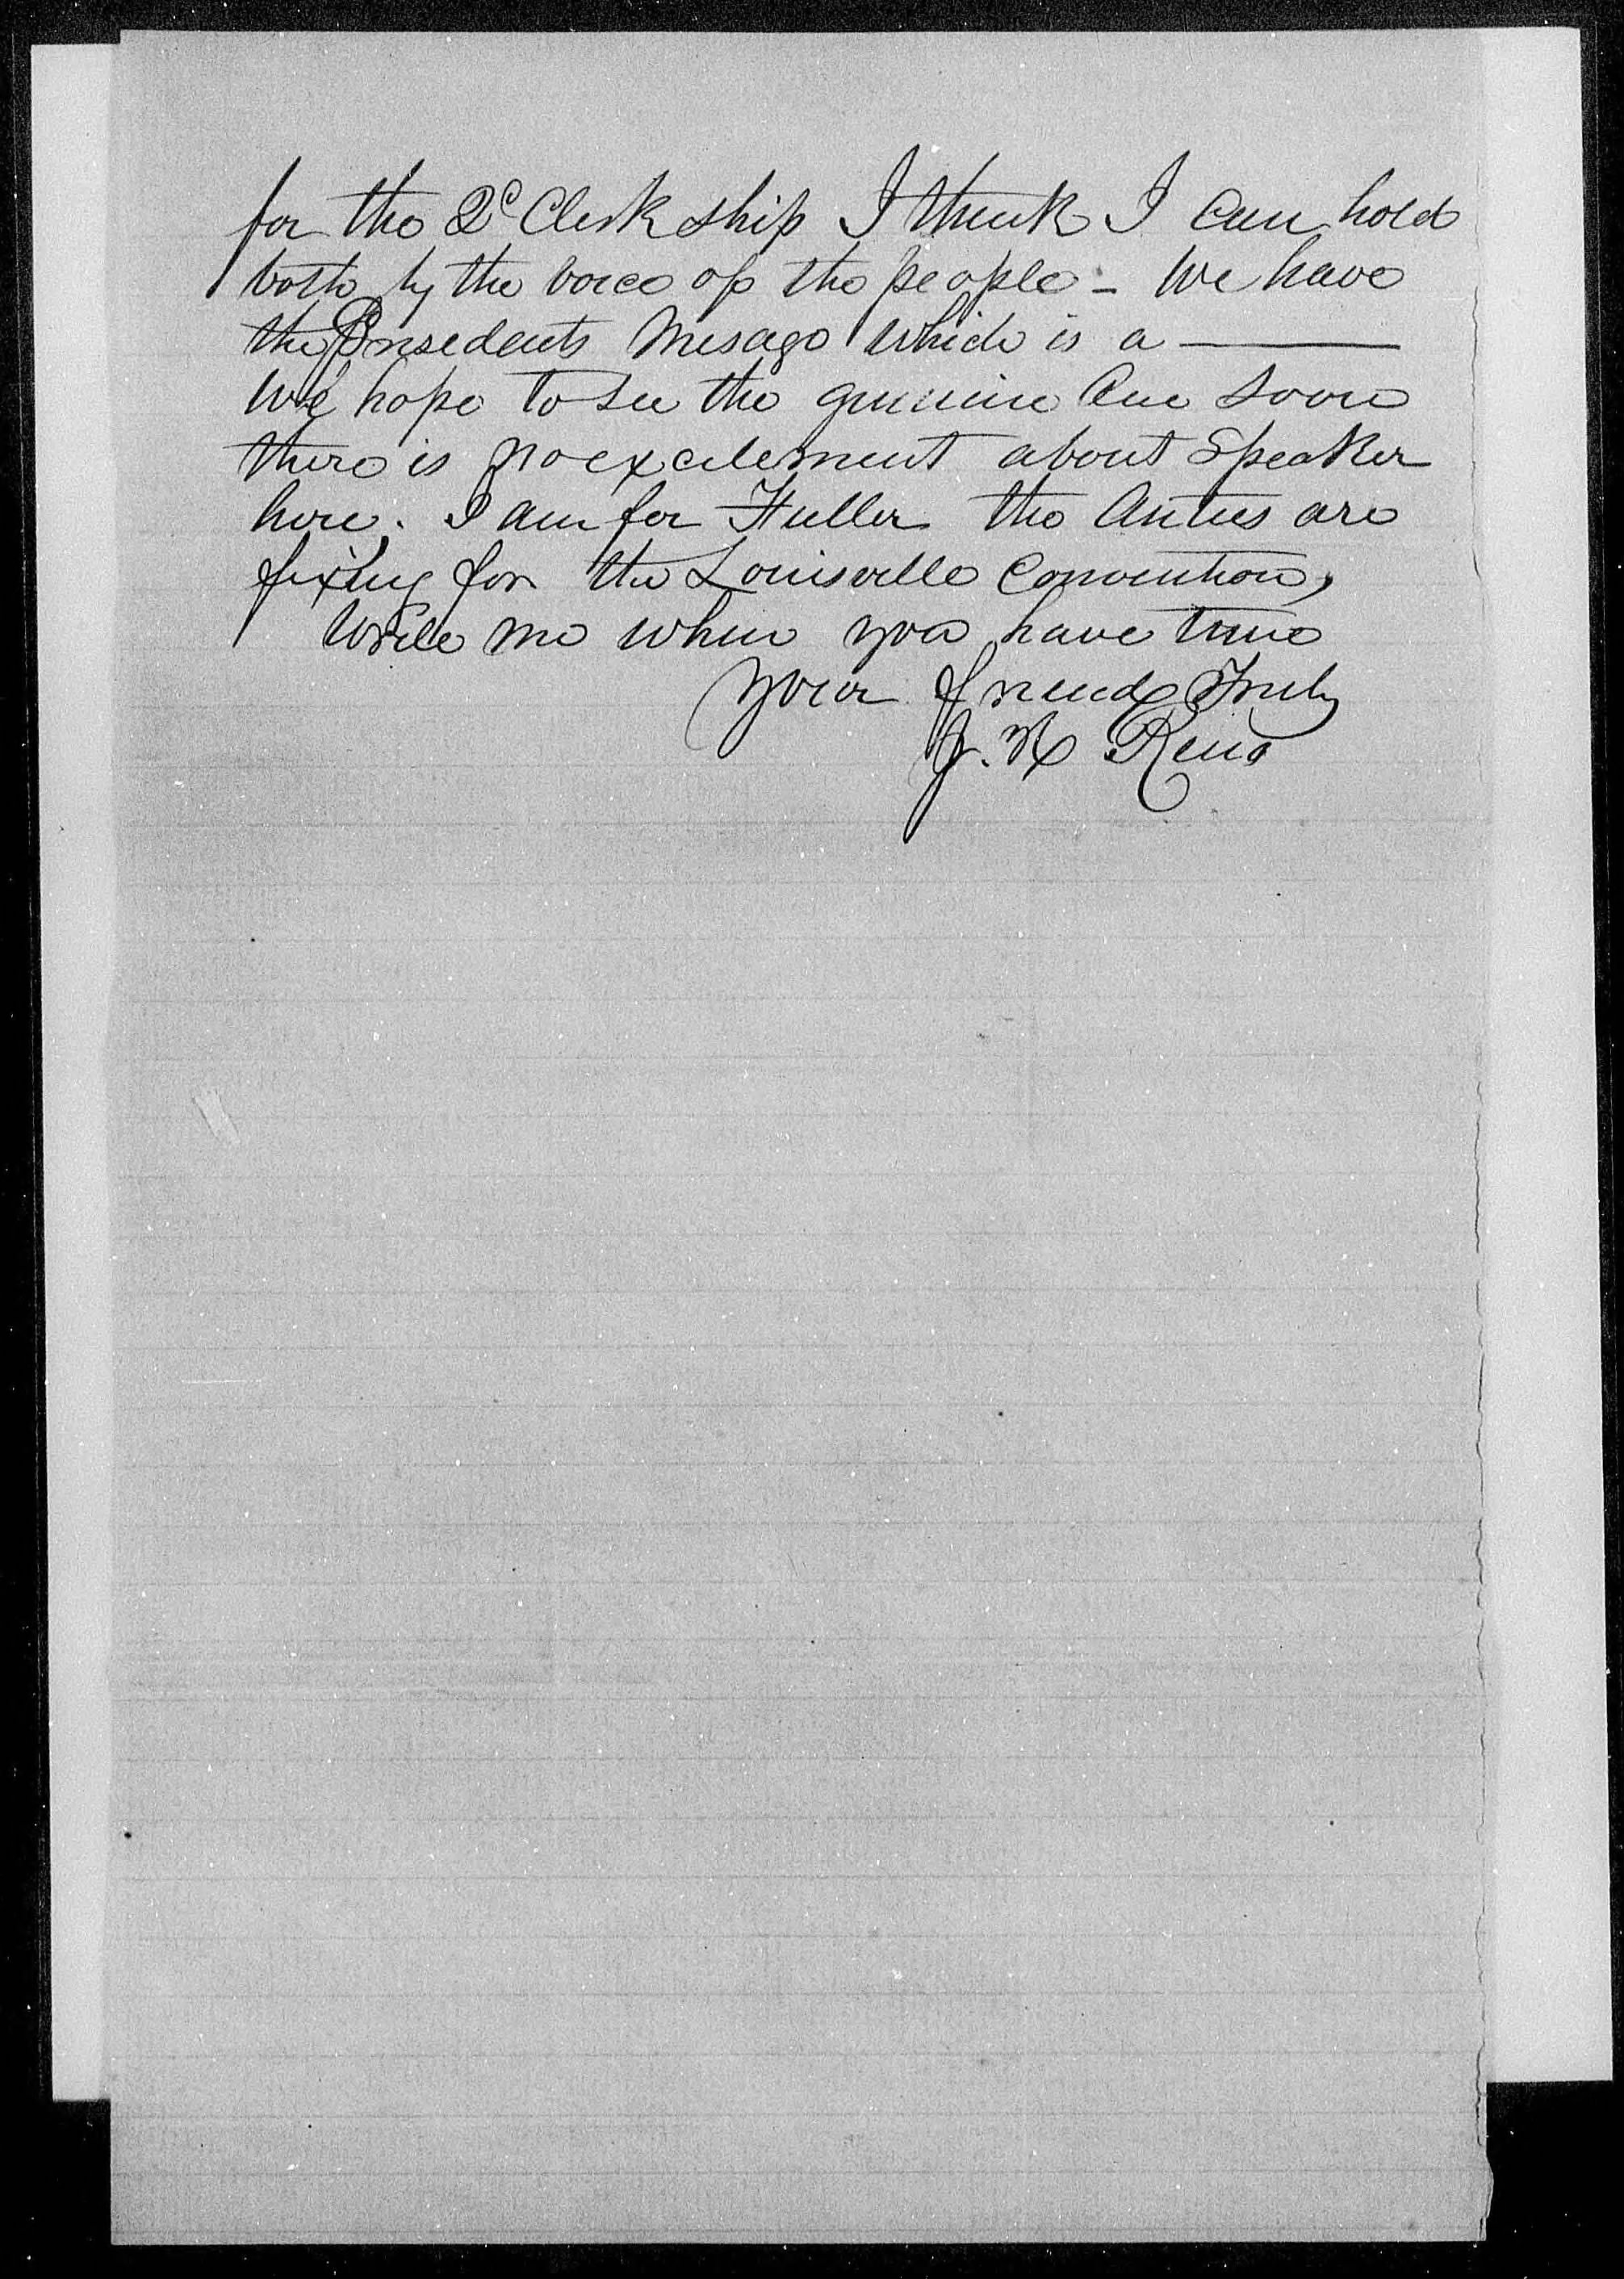 for the 2d Clerk ship I think I can hold
both by the voice of the people - We have
the Presedents Mesage which is a ———
We hope to see the genuine one soon
there is no excitement about Speaker
here. I am for Fuller the Anties are
fixing for the Louisville Convention,
Write me when you have time
your friend Truly
J. H Reno